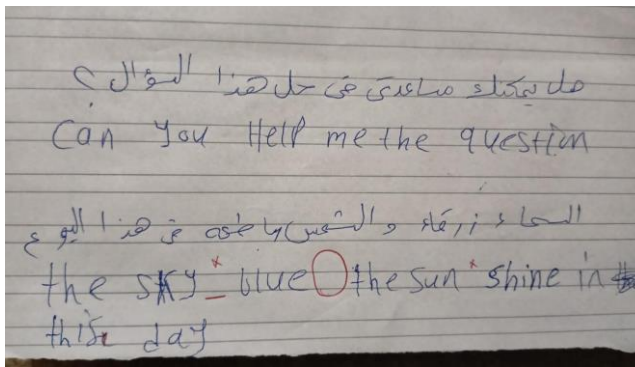 هل يمكنك مساعدتي في حل هذا السؤال؟
Can you Help me the question
السماء زرقاء و الشمس ساطعه في هذا اليوم
the sky blue the sun shine in
this day